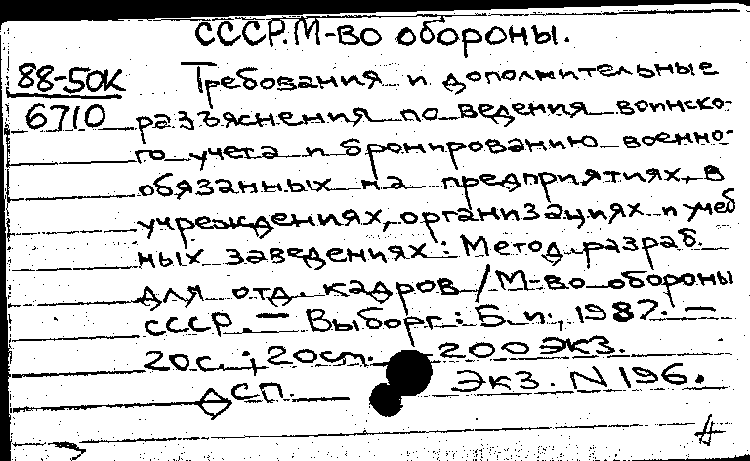 СССР. М-во обороны.
88-50К Требования и дополнительные
6710 разъяснения по ведения воинско-
го учета и бронированию военно-
обязанных на предприятиях, в
учреждениях, организациях и учеб
ных заведениях: Метод. разраб.
для отд. кадров / М-во обороны
СССР. — Выборг: Б. и., 1987. —
20с.; 20см. 200 экз.
Экз. N 196.
СП.